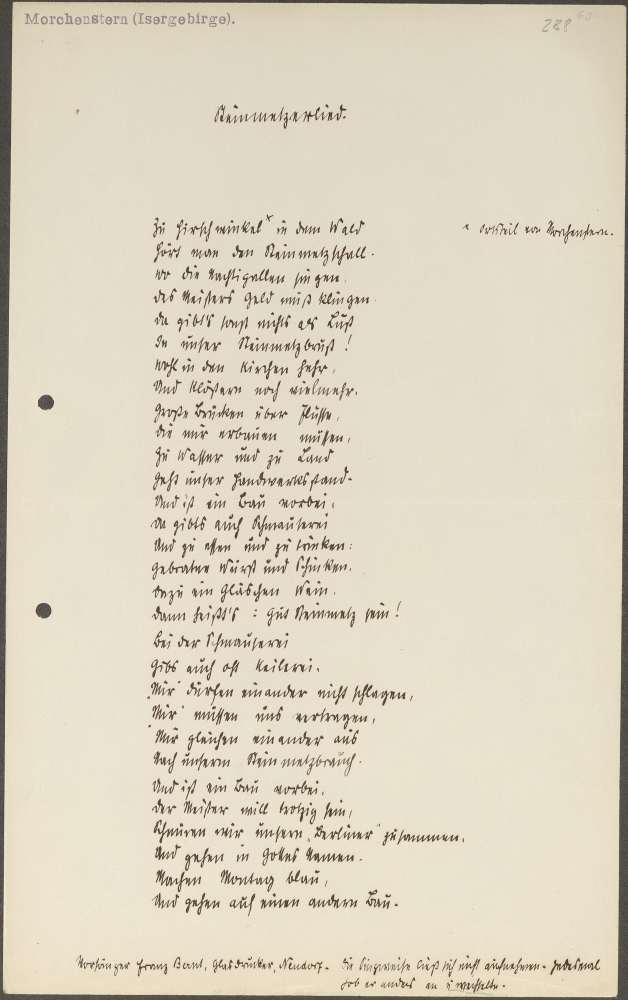 Morchenstern (Isergebirge).
288
Steinmetzerlied.
Zu Hirschwinkel x in dem Wald
x Ortsteil von Morchenstern.
Hört man den Steinmetzschall.
Wo die Nachtigallen singen
Des Meisters Geld muß klingen
Da gibt's sonst nichts als Lust
In unser Steinmetzbrust!
Wohl in den Kirchen sehr,
Und Klöstern noch vielmehr.
Große Brücken über Flüsse,
Die mir erbauen müssen,
Zu Wasser und zu Land
Geht unser Handwerksstand.
Und ist ein Bau vorbei,
Da gibts auch Schmauserei
Und zu essen und zu trinken:
Gebratne Würst und Schinken.
Dazu ein Gläschen Wein.
Dann heißt's: Gut Steinmetz sein!
Bei der Schmauserei
Gibs auch oft Keilerei.
"Mir" dürfen einander nicht schlagen,
"Mir" müssen uns vertragen,
"Mir gleichen einander aus
Nach unserm Steinmetzbrauch.
Und ist ein Bau vorbei,
Der Meister will trotzig sein,
Schnüren wir unsern "Berliner" zusammen,
Und gehen in Gottes Namen.
Machen Montag blau,
Und gehen auf einen andern Bau.
Vorsänger Franz Bernt, Glasdrucker, Neudorf. Die Singweise ließ sich nicht aufnehmen. Jedesmal
hob er anders an u. wechselte.